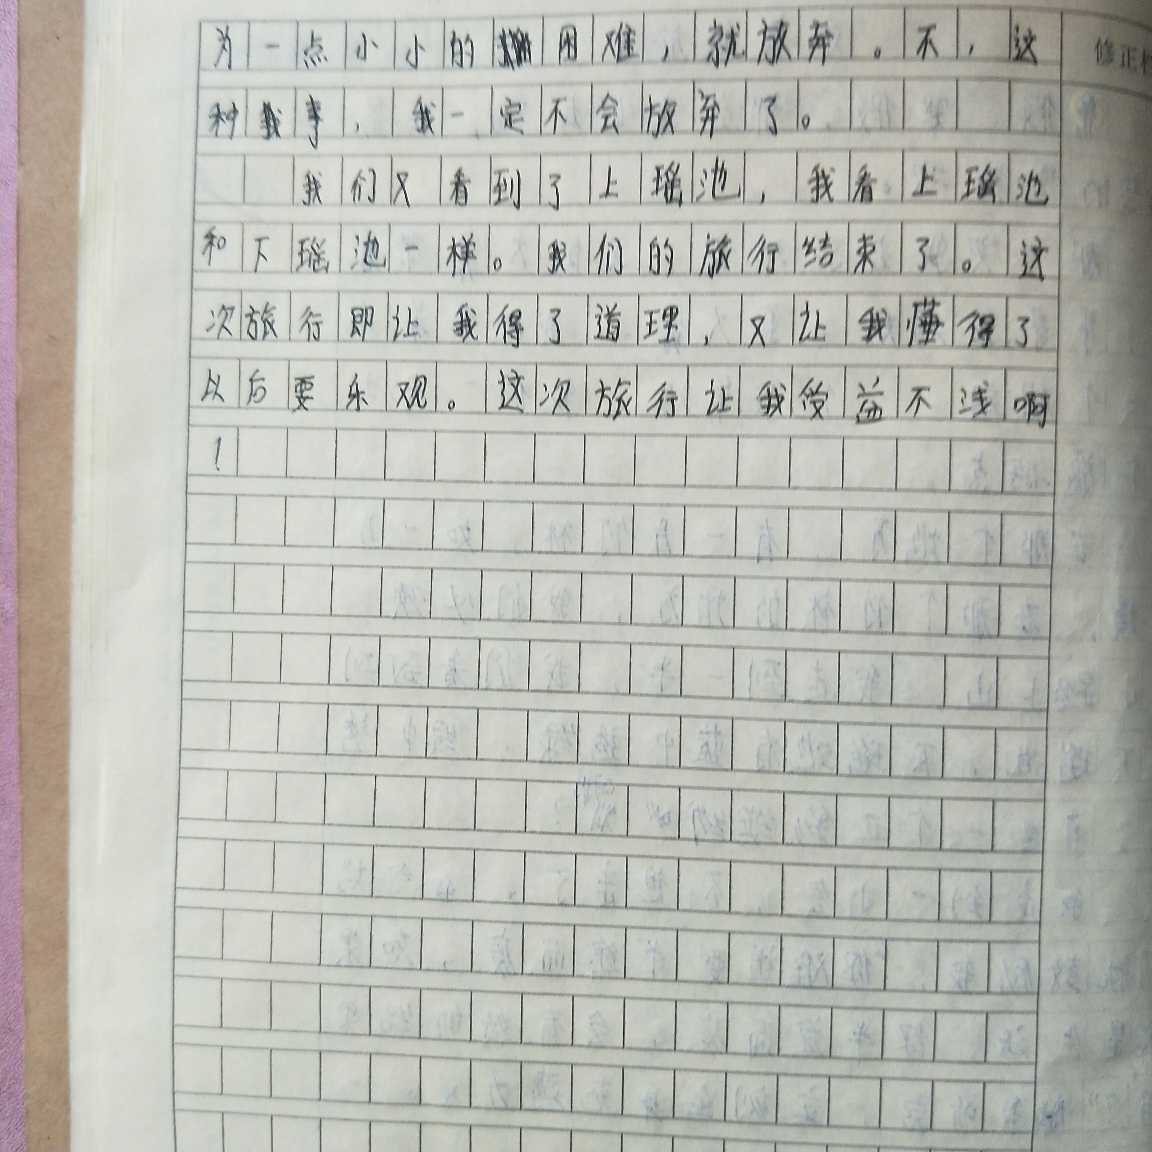 为一点小小的困难，就放弃。不，这
种事，我一定不会放弃了。
我们又看到了上瑶池，我看上瑶池
和下瑶池一样。我们的旅行结束了。这
次旅行即让我得了道理，又让我懂得了
以后要乐观。这次旅行让我受益不浅啊
！
修正栏